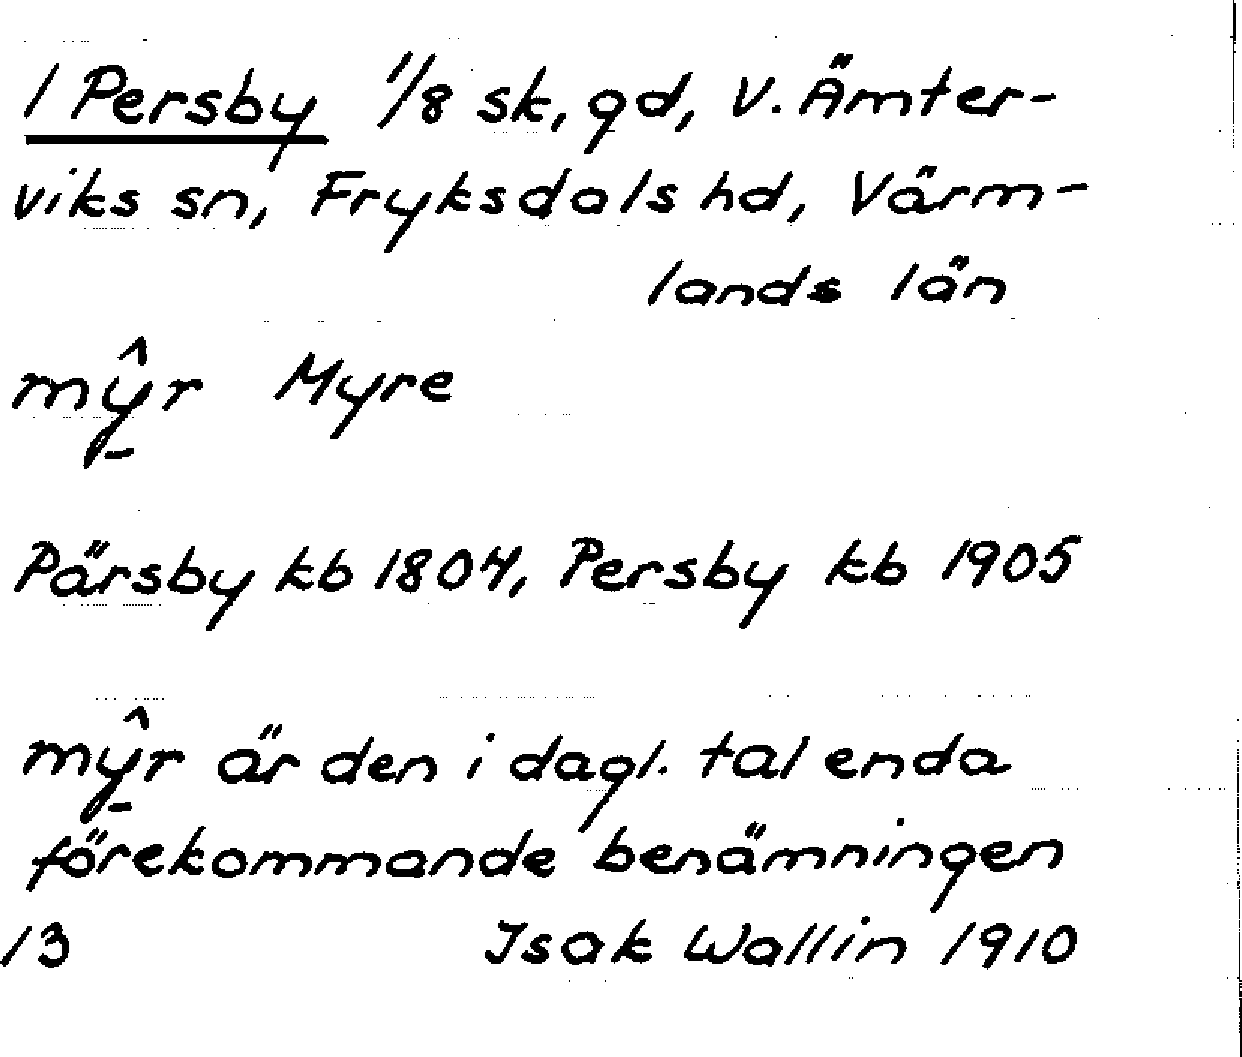 1 Persby 1/8 sk, gd, V. Ämter-
viks sn, Fryksdals hd, Värm-
lands län
mŷ̠r Myre
Pärsby kb 1804, Persby kb 1905
mŷ̠r är den i dagl. tal enda
förekommande benämningen
13 Isak Wallin 1910